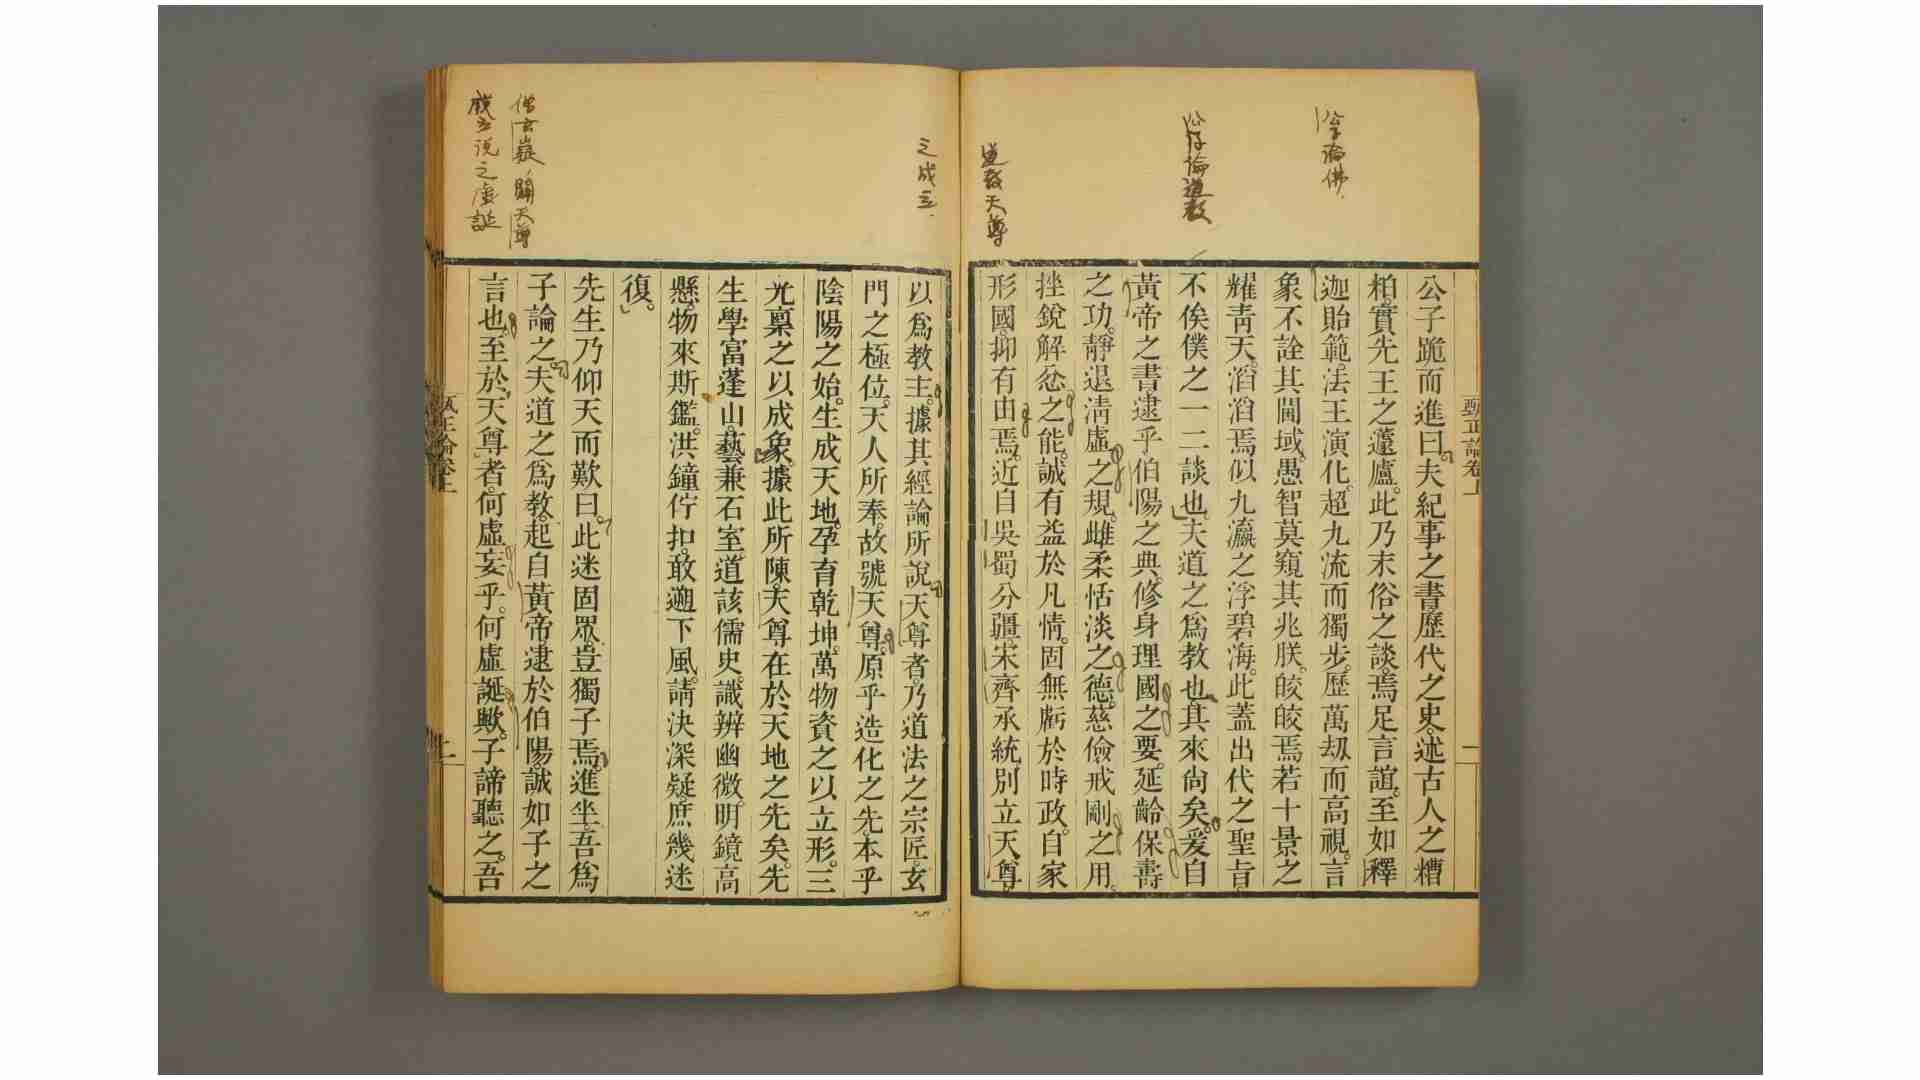 公子論佛
公子論道教
道教天尊
之成立
僧玄嶷闢天尊
成立說之虛誕
甄正論卷上
一
公子跪而進曰夫紀事之書歷代之史述古人之糟
粕。實先王之蘧廬。此乃末俗之談。焉足言誼。至如釋
迦貽範。法王演化。超九流而獨步。歷萬劫而高視。言
象不詮其閫域。愚智莫窺其兆朕。皎皎焉若十景之
耀靑天。滔滔焉似九瀛之浮碧海。此蓋出代之聖旨。
不俟僕之一二談也。夫道之爲教也。其來尙矣。爰自
黃帝之書逮乎伯陽之典。修身理國之要。延齡保壽
之功。靜退淸虛之規。雌柔恬淡之德。慈儉戒剛之用。
挫銳解忿之能。誠有益於凡情。固無虧於時政。自家
形國。抑有由焉。近自吳蜀分疆。宋齊承統別立天尊。
以爲教主。據其經論所說天尊者。乃道法之宗匠。玄
門之極位。天人所奉。故號天尊。原乎造化之先。本乎
陰陽之始。生成天地。孕育乾坤。萬物資之以立形。三
光稟之以成象。據此所陳。天尊在於天地之先矣。先
生學富蓬山。藝兼石室。道該儒史。識辨幽微。明鏡高
懸。物來斯鑑。洪鐘佇扣。敢遡下風。請決深疑。庶幾迷
復。
先生乃仰天而歎曰。此迷固眾。豈獨子焉。進坐。吾爲
子論之。夫道之爲教。起自黃帝逮於伯陽。誠如子之
言也。至於天尊者。何虛妄乎。何虛誕歟。子諦聽之。吾
甄正論卷上
二